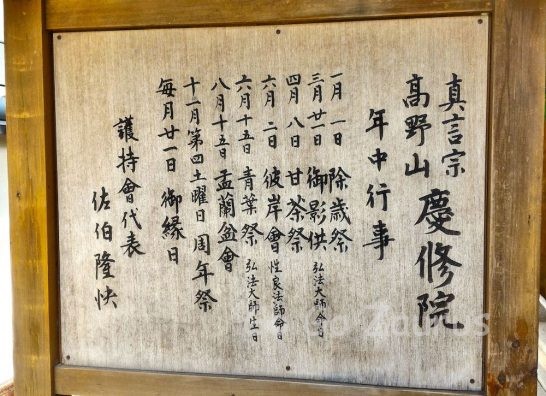 真言宗
髙野山 慶修院
年中行事
一月一日 除歳祭
三月廿一日 御影供 弘法大師命日
四月八日 甘茶祭
六月二日 彼岸會 性良法師命日
六月十五日 青葉祭 弘法大師生日
八月十五日 盂蘭盆會
十一月第四土曜日 周年祭
毎月廿一日 御縁日
護持會代表
佐伯隆快